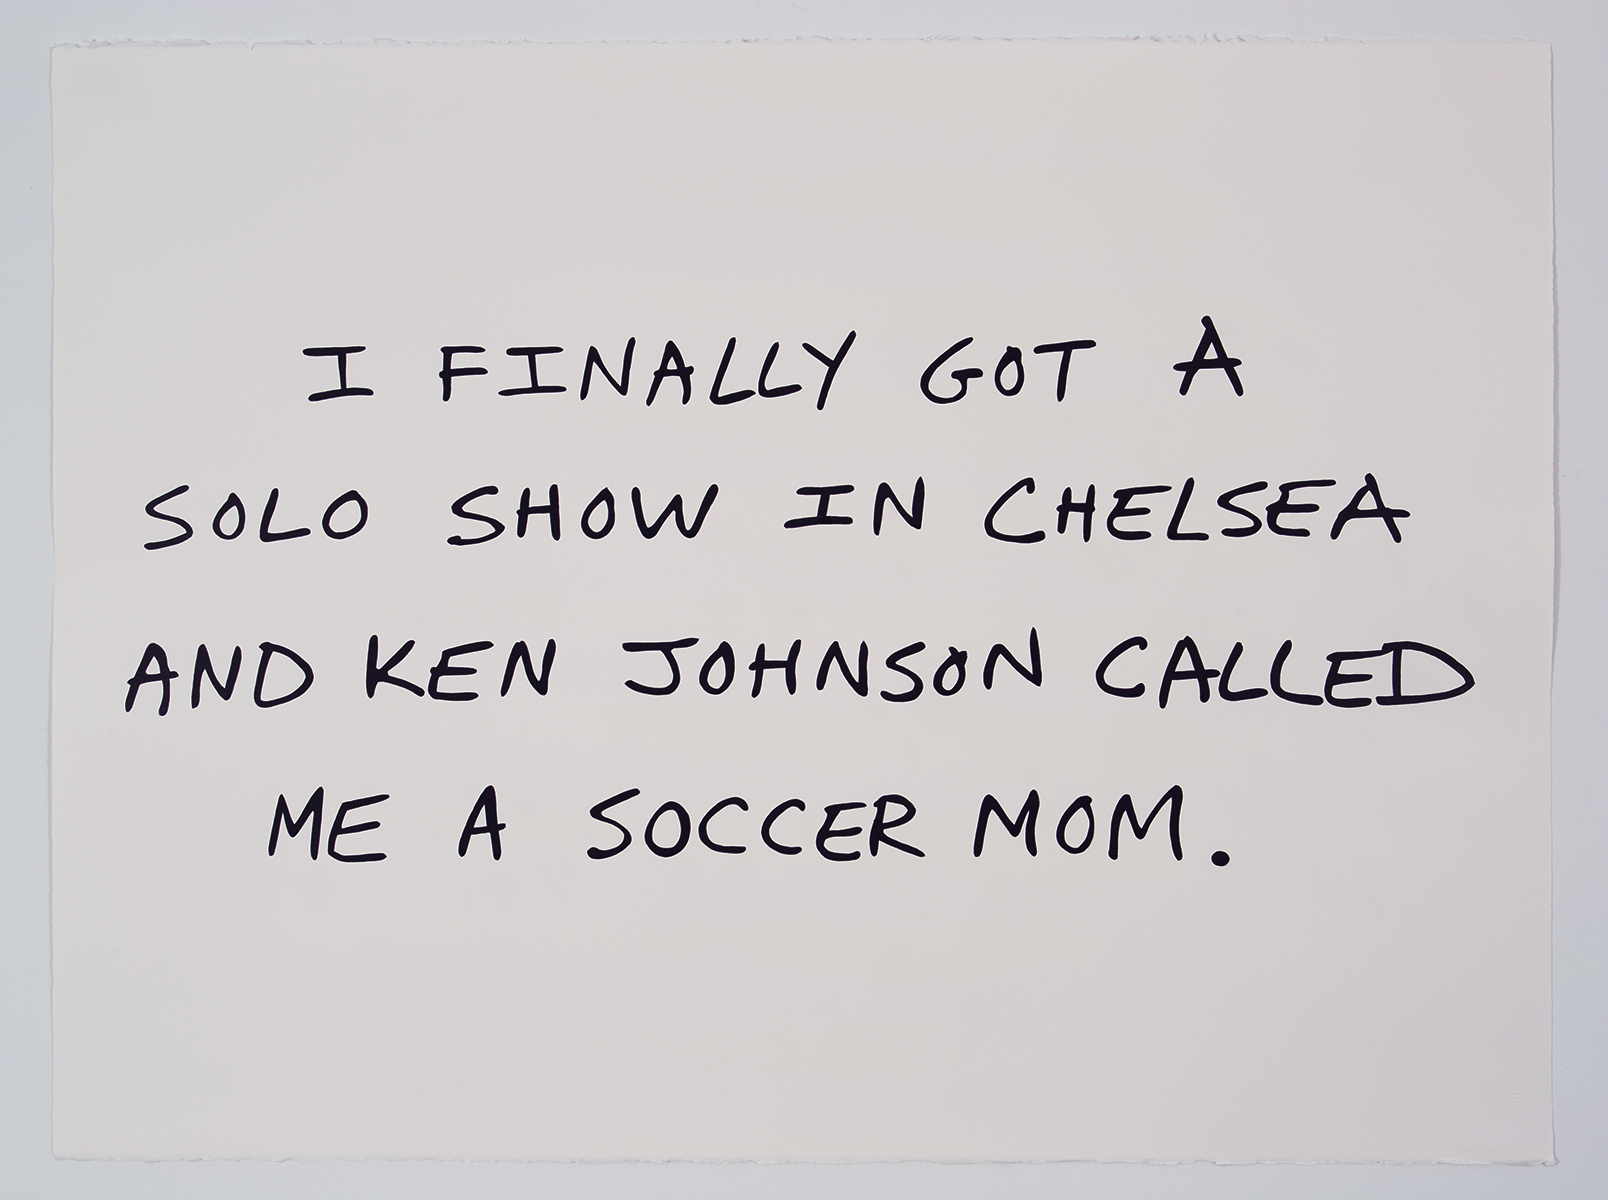 I FINALLY GOT A
SOLO SHOW IN CHELSEA
AND KEN JOHNSON CALLED
ME A SOCCER MOM.